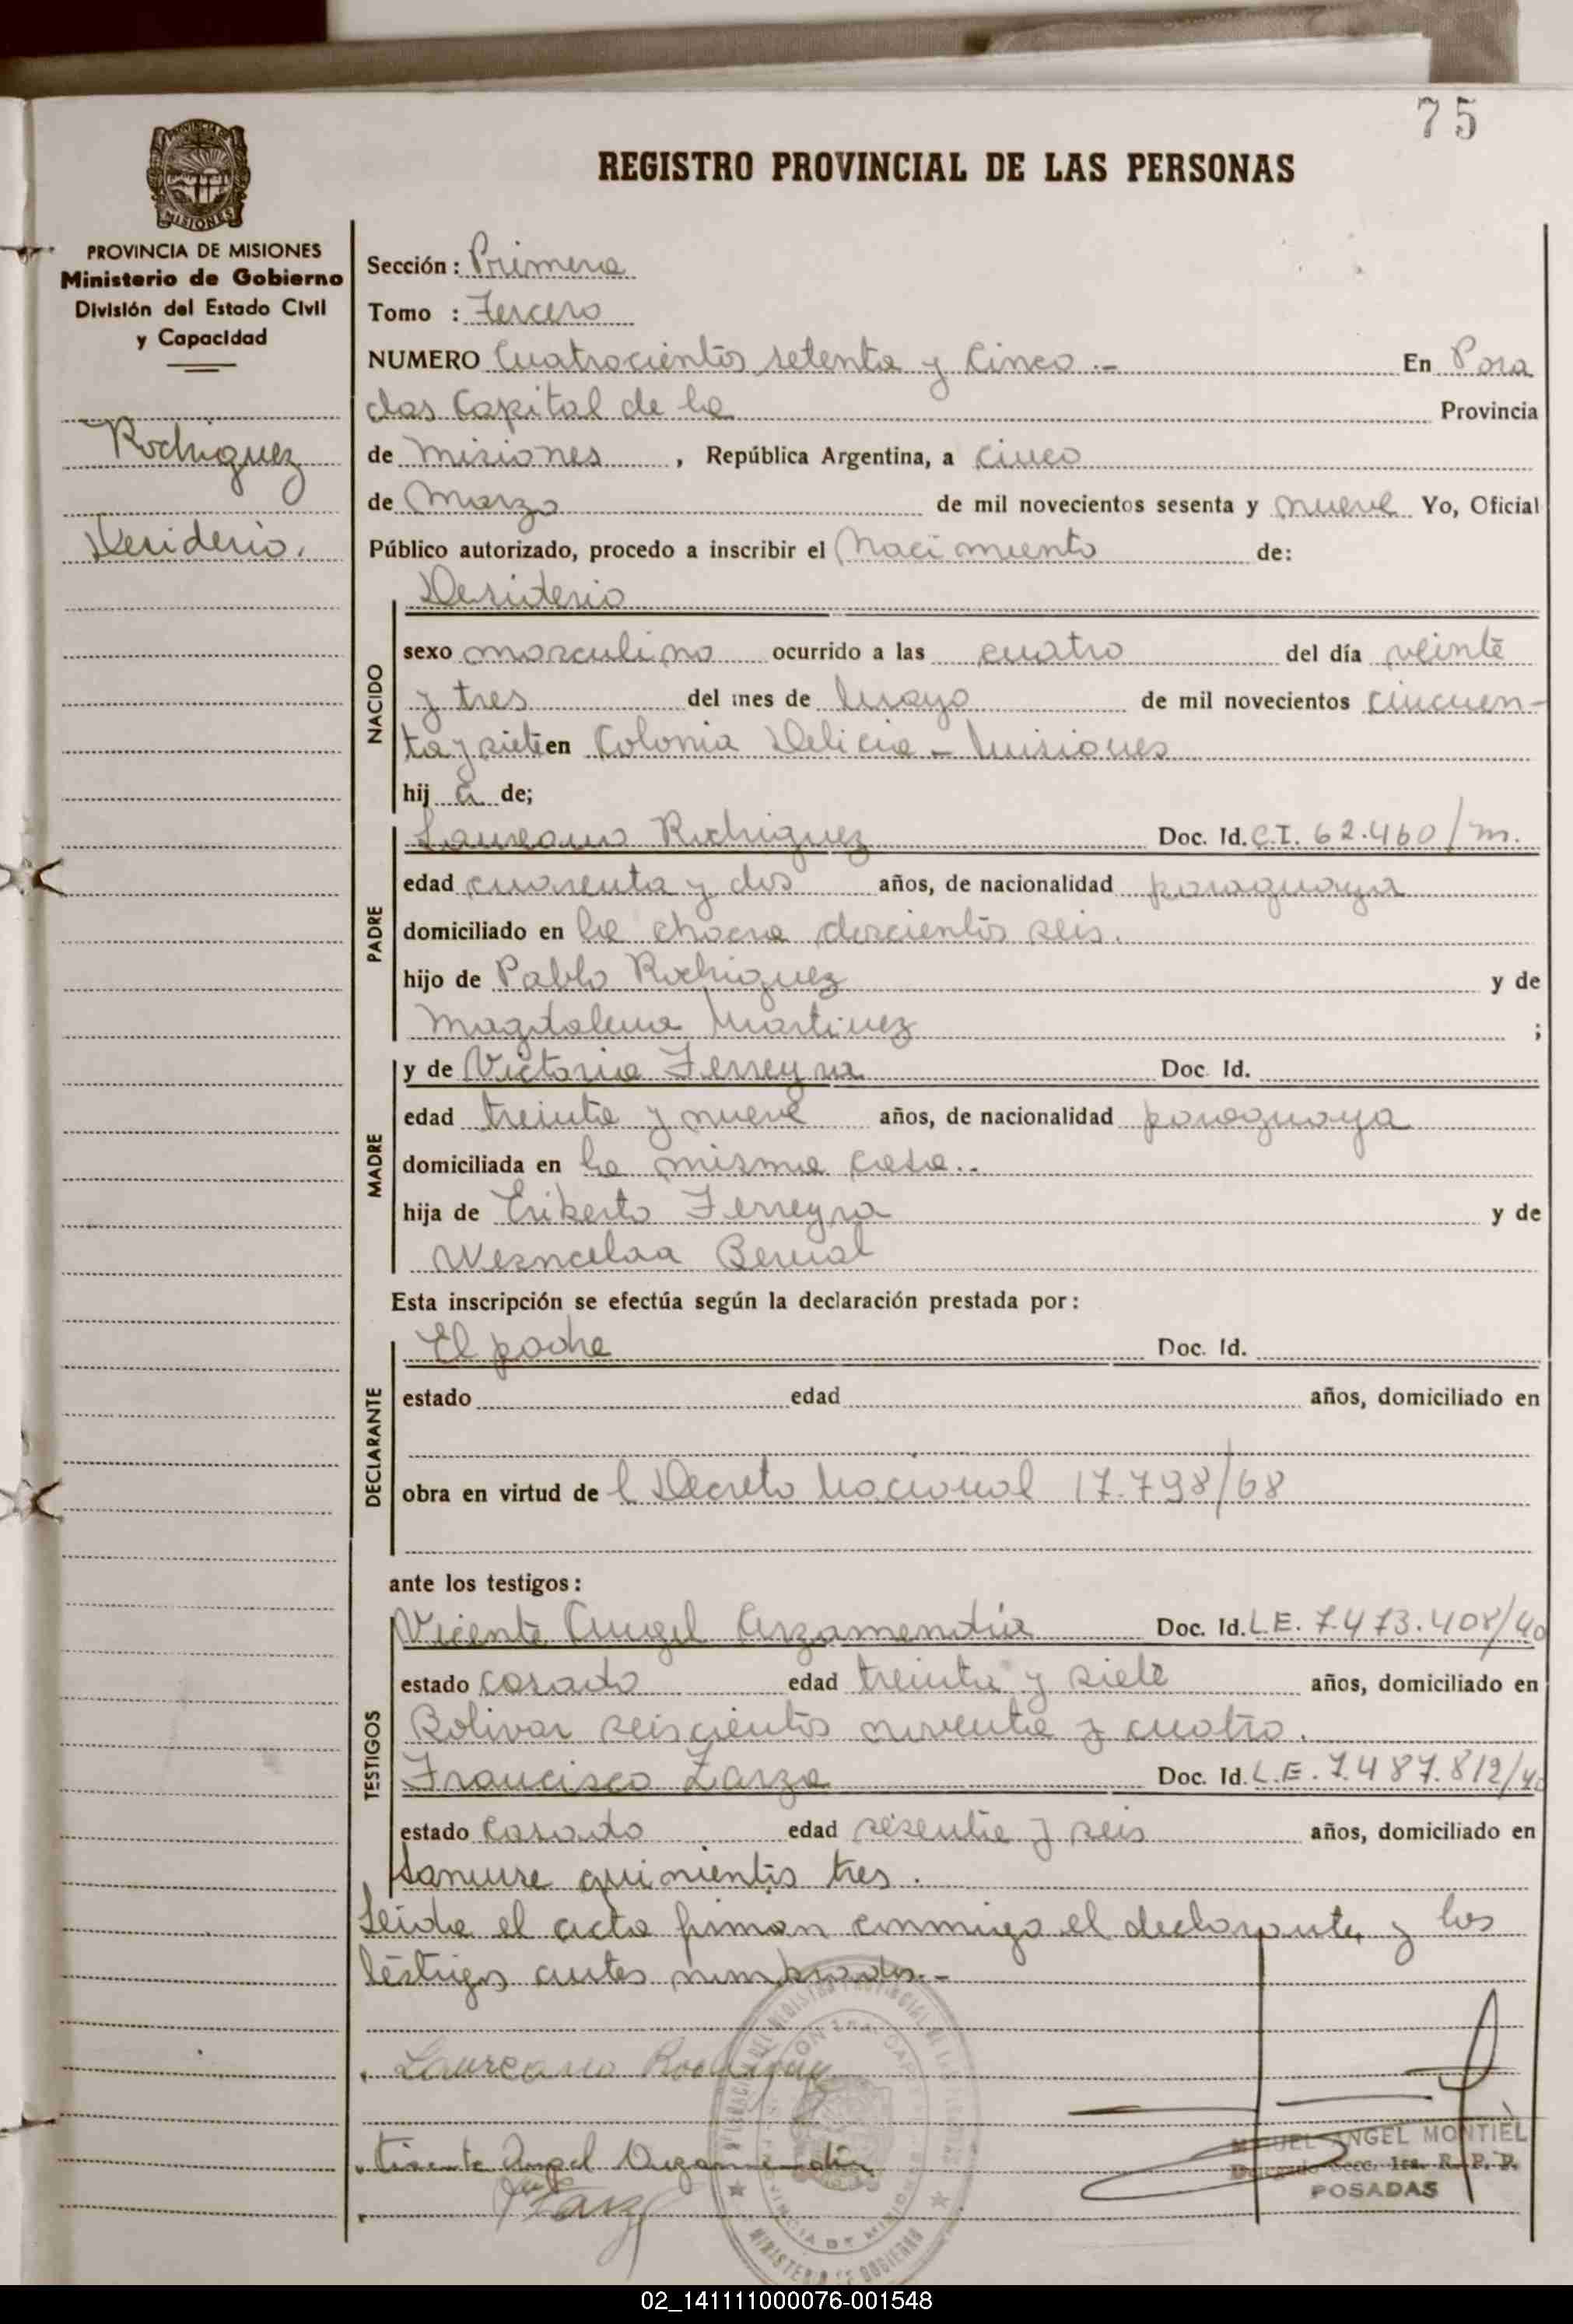 75
REGISTRO PROVINCIAL DE LAS PERSONAS
MISIONES
PROVINCIA DE MISIONES
Ministerio de Gobierno
División del Estado Civil
y Capacidad
Rodriguez
Desiderio.
Sección: Primera
Tomo : Tercero
NUMERO Cuatrocientos setenta y cinco.- En Posa
das Capital de la Provincia
de Misiones, República Argentina, a cinco
de Marzo de mil novecientos sesenta y nueve Yo, Oficial
Público autorizado, procedo a inscribir el Nacimiento de:
NACIDO
Desiderio
sexo masculino ocurrido a las cuatro del día veinte
y tres del mes de Mayo de mil novecientos cincuen-
ta y siete en Colonia Delicia - Misiones
hij a de;
PADRE
Laureano Rodriguez Doc. Id. C.I. 62.460/m.
edad cuarenta y dos años, de nacionalidad paraguaya
domiciliado en la chacra doscientos seis.
hijo de Pablo Rodriguez y de
Magdalena Martinez ;
MADRE
y de Victoria Ferreyra Doc. Id.
edad treinta y nueve años, de nacionalidad paraguaya
domiciliada en la misma casa..
hija de Eriberto Ferreyra y de
Wesncelaa Bernal
Esta inscripción se efectúa según la declaración prestada por:
DECLARANTE
El padre Doc. Id.
estado edad años, domiciliado en
obra en virtud de l Decreto Nacional 17.798/68
ante los testigos:
TESTIGOS
Vicente Angel Arzamendia Doc. Id. L.E. 7.473.408/40
estado casado edad treinta y siete años, domiciliado en
Bolivar seiscientos noventa y cuatro.
Francisco Zarza Doc. Id. L.E. 7.487.812/40
estado casado edad sesenta y seis años, domiciliado en
quinientos tres.
Leida el acta firman conmigo el declarante, y los
testigos antes nombrados.-
Laureano Rodriguez
Vicente Angel Arzamendia
Zarza
MIGUEL ANGEL MONTIEL
Delegado Secc. 1ra. R. P. P.
POSADAS
MINISTERIO DE GOBIERNO
02_141111000076-001548